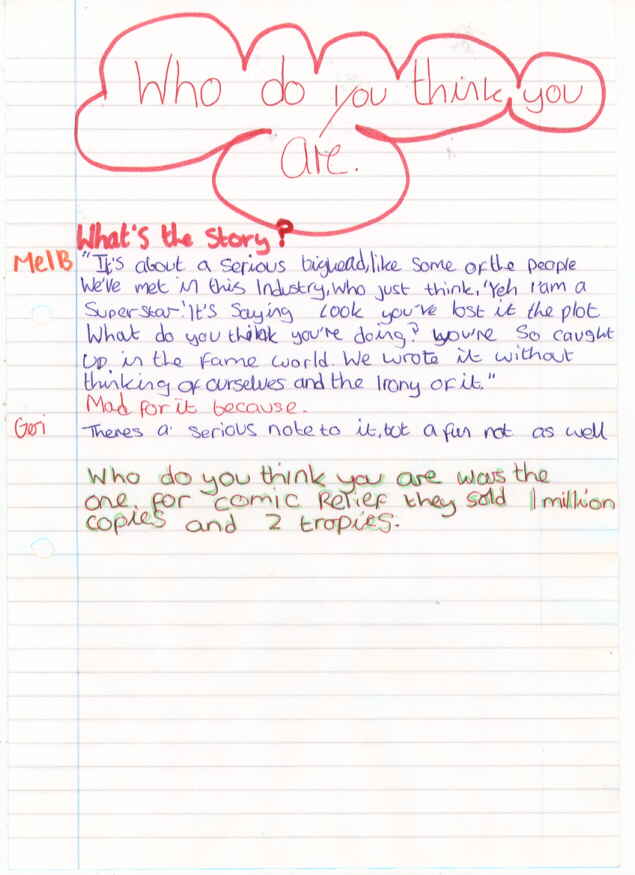 Who do you think you
are.
What's the Story?
Mel B "It's about a serious bighead, like some of the people
We've met in this Industry, Who just think, 'Yeh I am a
Superstar'. It's Saying Look you've lost it the plot
What do you think you're doing? you're So caught
up in the Fame World. We wrote it without
thinking of ourselves and the Irony of it."
Mad for it because.
Geri Theres a serious note to it, but a fun not as well
Who do you think you are was the
one, for Comic Relief they sold 1 million
copies and 2 tropies.